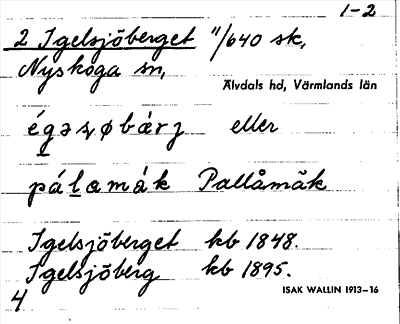 1-2
2 Igelsjöberget 11/640 sk,
Nyskoga sn,
Älvdals hd, Värmlands län
eller
Pallåmäk
Igelsjöberget kb 1848.
Igelsjöberg kb 1895.
4
ISAK WALLIN 1913–16